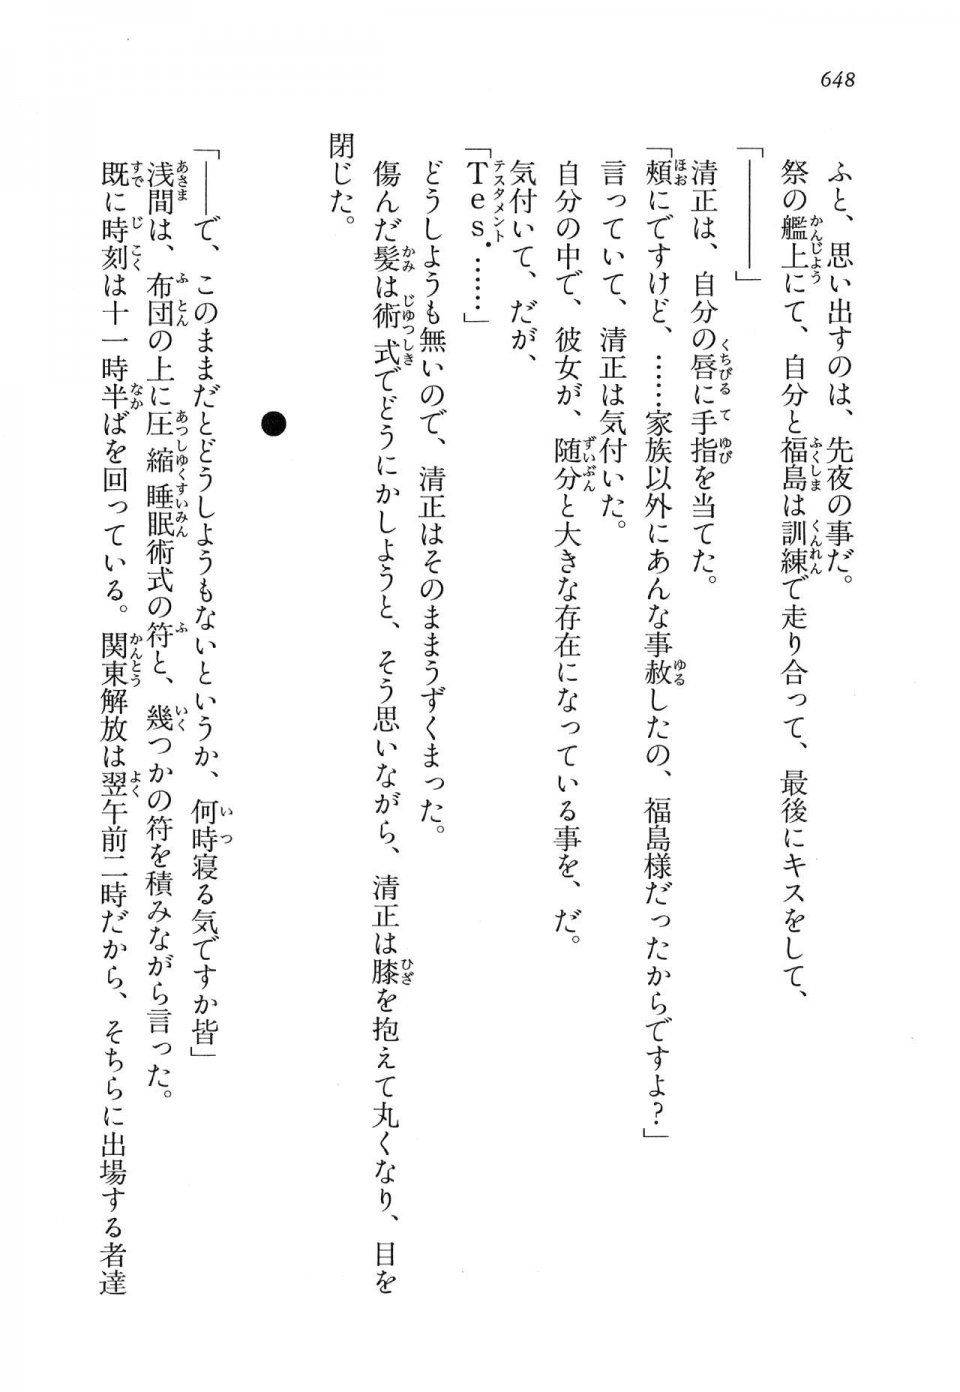 648
ふと、思い出すのは、先夜の事だ。
祭の艦上にて、自分と福島は訓練で走り合って、最後にキスをして、
「———」
清正は、自分の唇に手指を当てた。
「頬にですけど、……家族以外にあんな事赦したの、福島様だったからですよ？」
言っていて、清正は気付いた。
自分の中で、彼女が、随分と大きな存在になっている事を、だ。
気付いて、だが、
「Tes.……」
どうしようも無いので、清正はそのままうずくまった。
傷んだ髪は術式でどうにかしようと、そう思いながら、清正は膝を抱えて丸くなり、目を
閉じた。
●
「——で、このままだとどうしようもないというか、何時寝る気ですか皆」
浅間は、布団の上に圧縮睡眠術式の符と、幾つかの符を積みながら言った。
既に時刻は十一時半ばを回っている。関東解放は翌午前二時だから、そちらに出場する者達